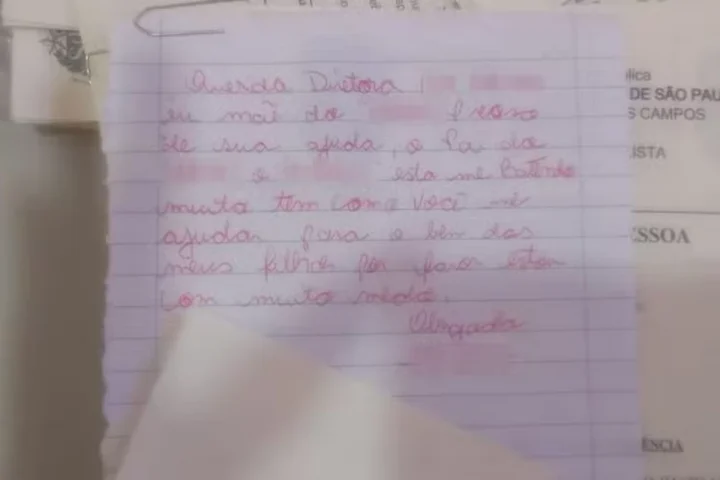 Querida Diretora
eu mãe do preciso
de sua ajuda, o Pai do
e está me Batendo
muito tem como você me
ajudar para o bem dos
meus filhos por favor estou
com muito medo.
Obrigada
lica
DE SÃO PAU
S CAMPOS
ISTA
SSOA
ENCIA